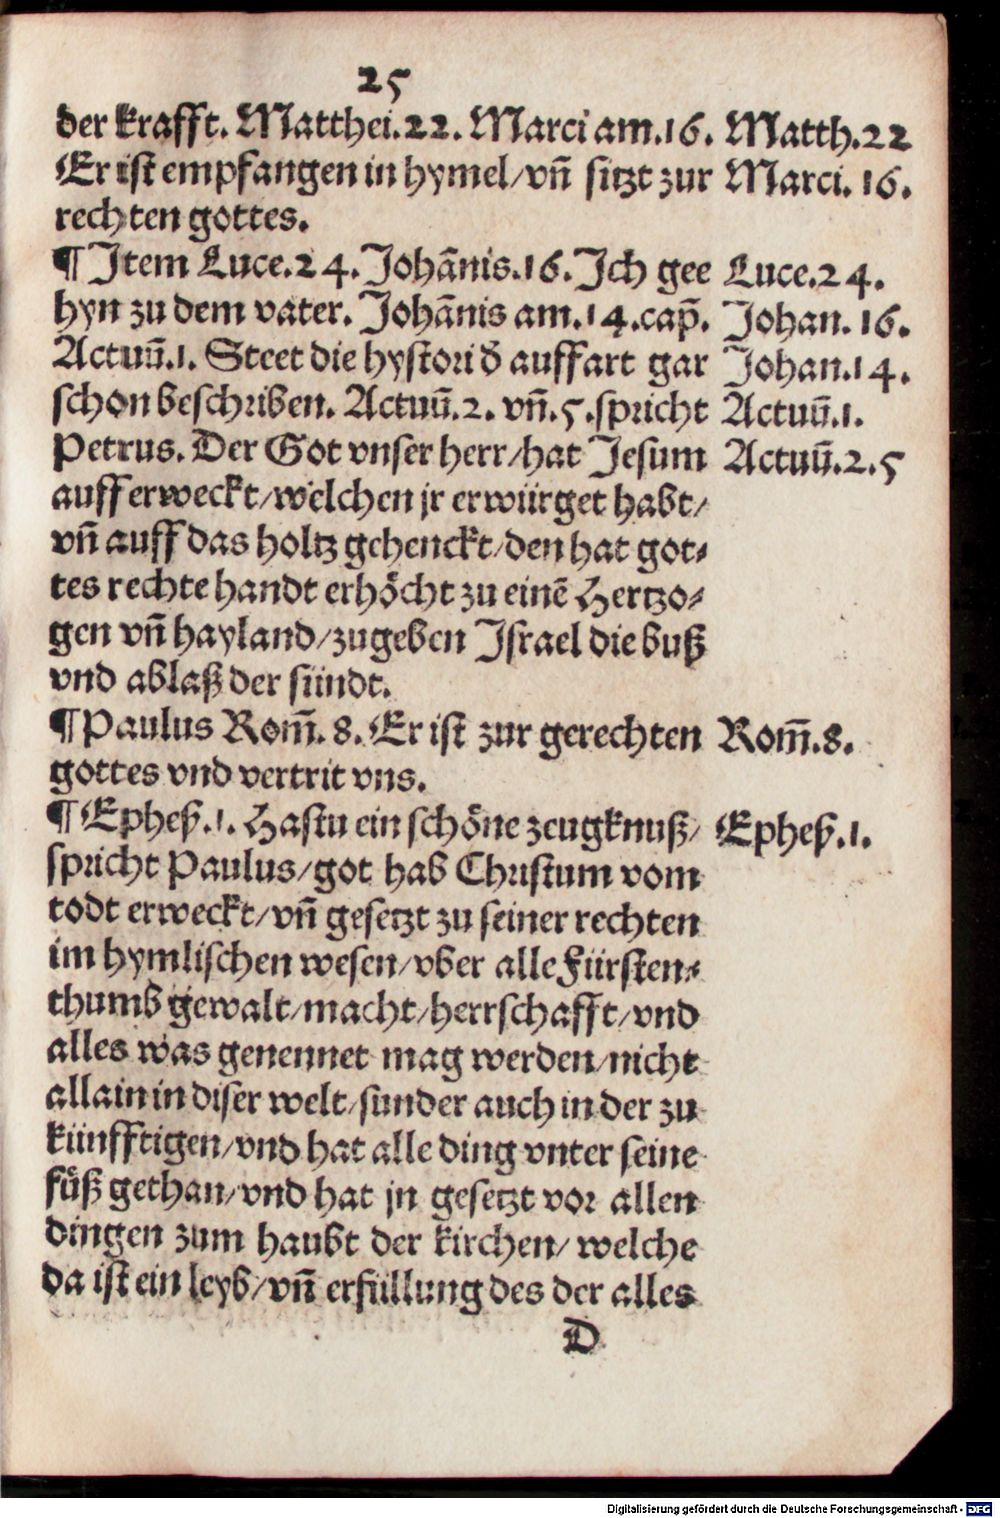 25
der krafft. Matthei.22. Marci am.16. Matth.22
Er ist empfangen in hymel/vn̄ sitzt zur Marci. 16.
rechten gottes.
¶ Item Luce.24. Johānis.16. Ich gee Luce.24.
hyn zu dem vater. Johānis am.14.cap̄. Johan. 16.
Actuū.1. Steet die hystori d̕ auffart gar Johan.14.
schon beschriben. Actuū.2. vn̄.5.spricht Actuū.1.
Petrus. Der Got vnser herr/hat Jesum Actuū.2.5
aufferweckt/welchen jr erwürget habt/
vn̄ auff das holtz gehenckt/den hat got⸗
tes rechte handt erhöcht zu einē Hertzo⸗
gen vn̄ hayland/zugeben Israel die buß
vnd ablaß der sündt.
¶ Paulus Rom̄. 8. Er ist zur gerechten Rom̄.8.
gottes vnd vertrit vns.
¶ Epheß.1. Hastu ein schöne zeugknuß/ Epheß.1.
spricht Paulus/got hab Christum vom
todt erweckt/vn̄ gesetzt zu seiner rechten
im hymlischen wesen/vber alle Fürsten⸗
thumb gewalt/macht/herrschafft/vnd
alles was genennet mag werden/nicht
allain in diser welt/sunder auch in der zu
künfftigen/vnd hat alle ding vnter seine
füß gethan/vnd hat jn gesetzt vor allen
dingen zum haubt der kirchen/ welche
da ist ein leyb/vn̄ erfüllung des der alles
D
Digitalisierung gefördert durch die Deutsche Forschungsgemeinschaft - DFG